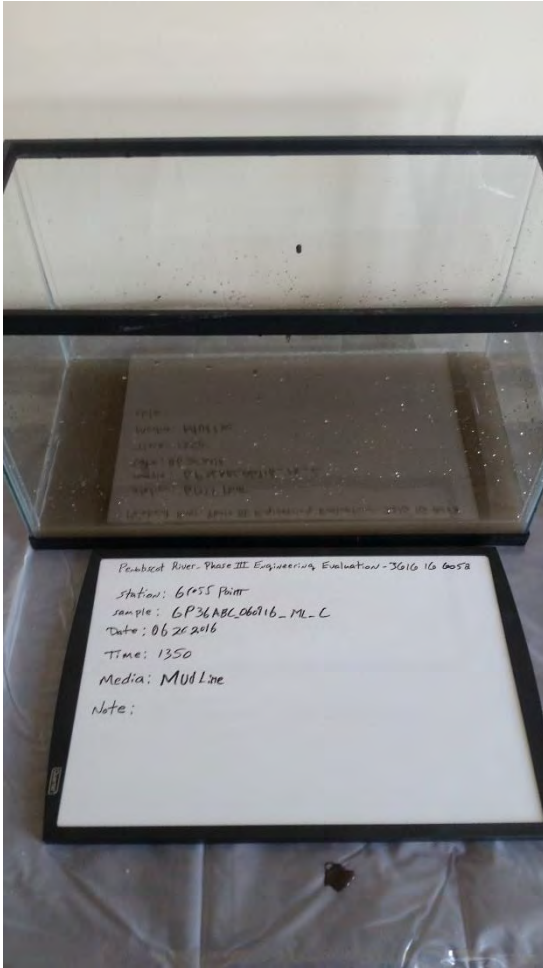 Penobscot River - Phase III Engineering Evaluation - 3616 16 6052
Station: Gross Point
Sample: GP36ABC_060816_ML_C
Date: 06 20 2016
Time: 1350
Media: Mud Line
Note: